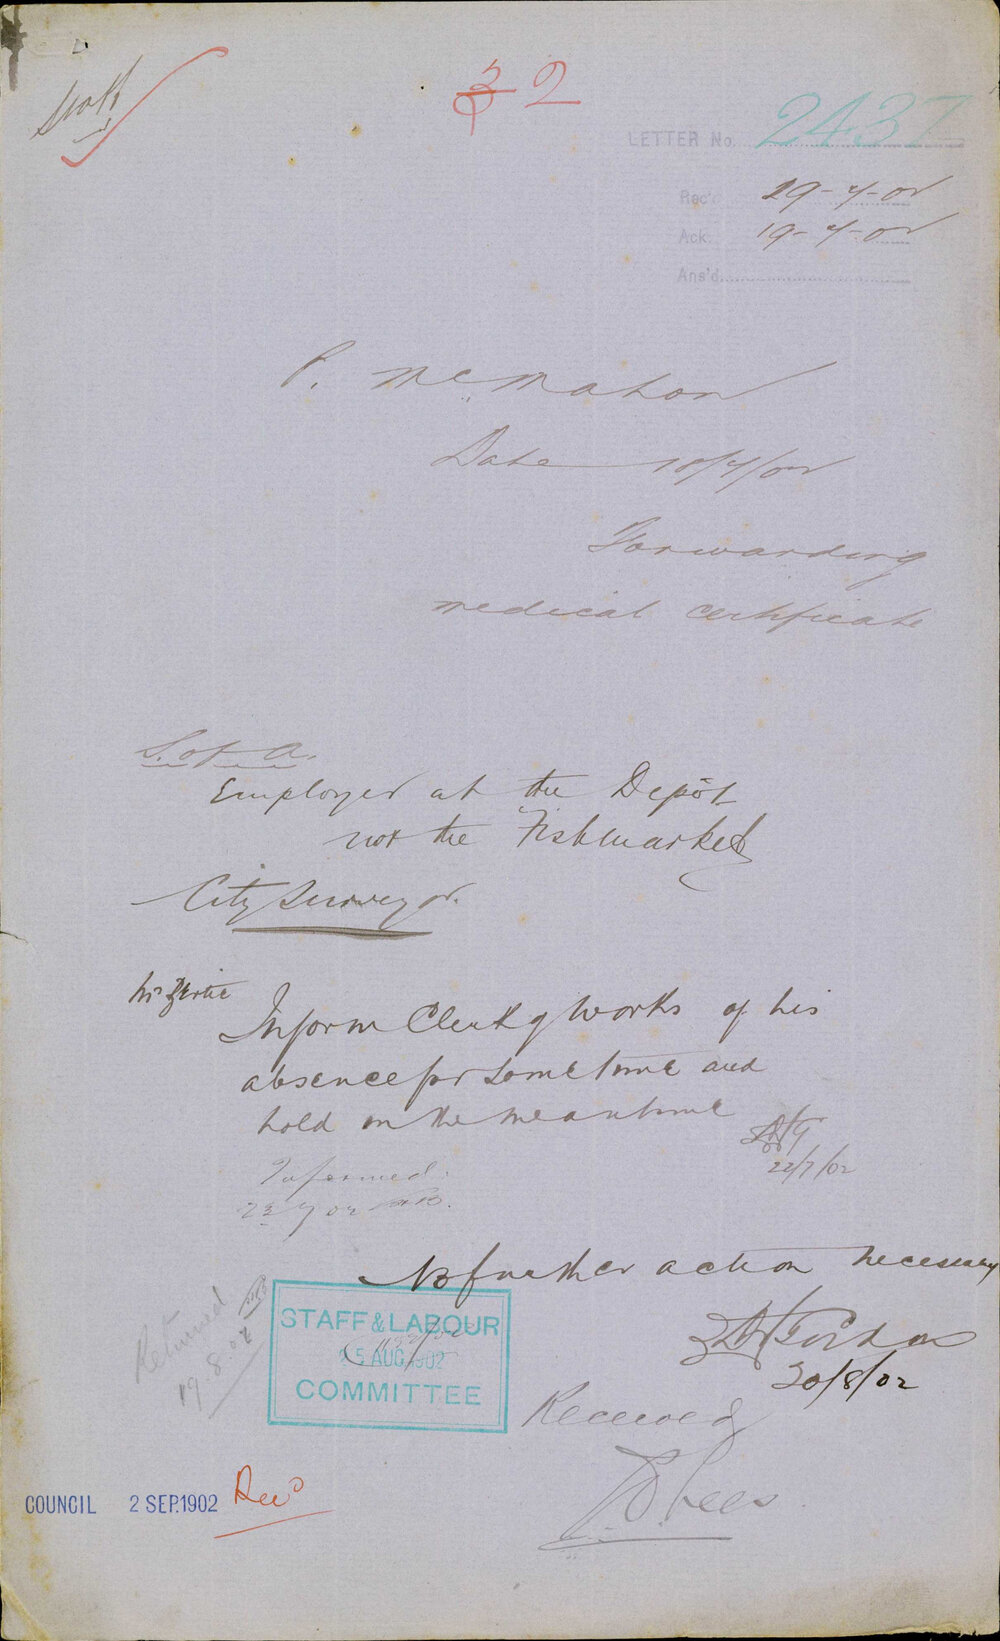 Staff
2
LETTER No. 2437
Rec'd 29-7-02
Ack. 19-7-02
Ans'd
P. McMahon
Date 18/7/02
Forwarding
medical certificate
Employed at the Depôt
not the Fishmarket
City Surveyor.
Inform Clerk of Works of his
absence for sometime and
hold in the meantime
22/7/02
Informed.
No further action necessary
20/8/02
Returned
19.8.02
STAFF & LABOUR
AUG. 1902
COMMITTEE
Received
COUNCIL 2 SEP. 1902 Rec'd